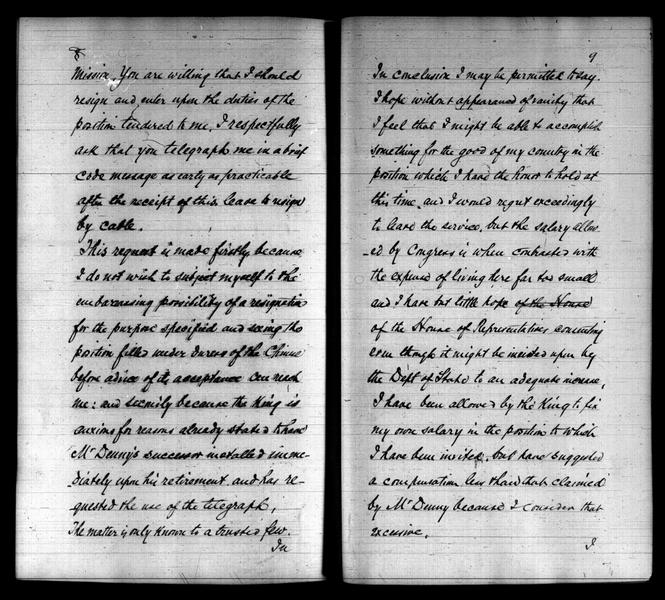 8
Mission, You are willing that I should
resign and enter upon the duties of the
position tendered to me, I respectfully
ask that you telegraph me in a brief
code message as early as practicable
after the receipt of this leave to resign
by cable.
This request is made firstly because
I do not wish to subject myself to the
embarrassing possibility of a resignation
for the purpose specified and seeing the
position filled under duress of the Chinese
before advice of its acceptance can reach
me: and secondly because the King is
anxious for reasons already stated to have
Mr Denny's successor installed imme-
diately upon his retirement and has re-
quested the use of the telegraph.
The matter is only known to a trusted few.
In
9
In conclusion I may be permitted to say.
I hope without appearance of vanity that
I feel that I might be able to accomplish
something for the good of my country in the
position which I have the honor to hold at
this time, and I would regret exceedingly
to leave the service, but the salary allow-
ed by Congress is when contrasted with
the expense of living here far too small
and I have but little hope of the House
of the House of Representatives consenting
even though it might be insisted upon by
the Dept of State to an adequate increase,
I have been allowed by the King to fix
my own salary in the position to which
I have been invited, but have suggested
a compensation less than that claimed
by Mr Denny because I consider that
excessive.
I